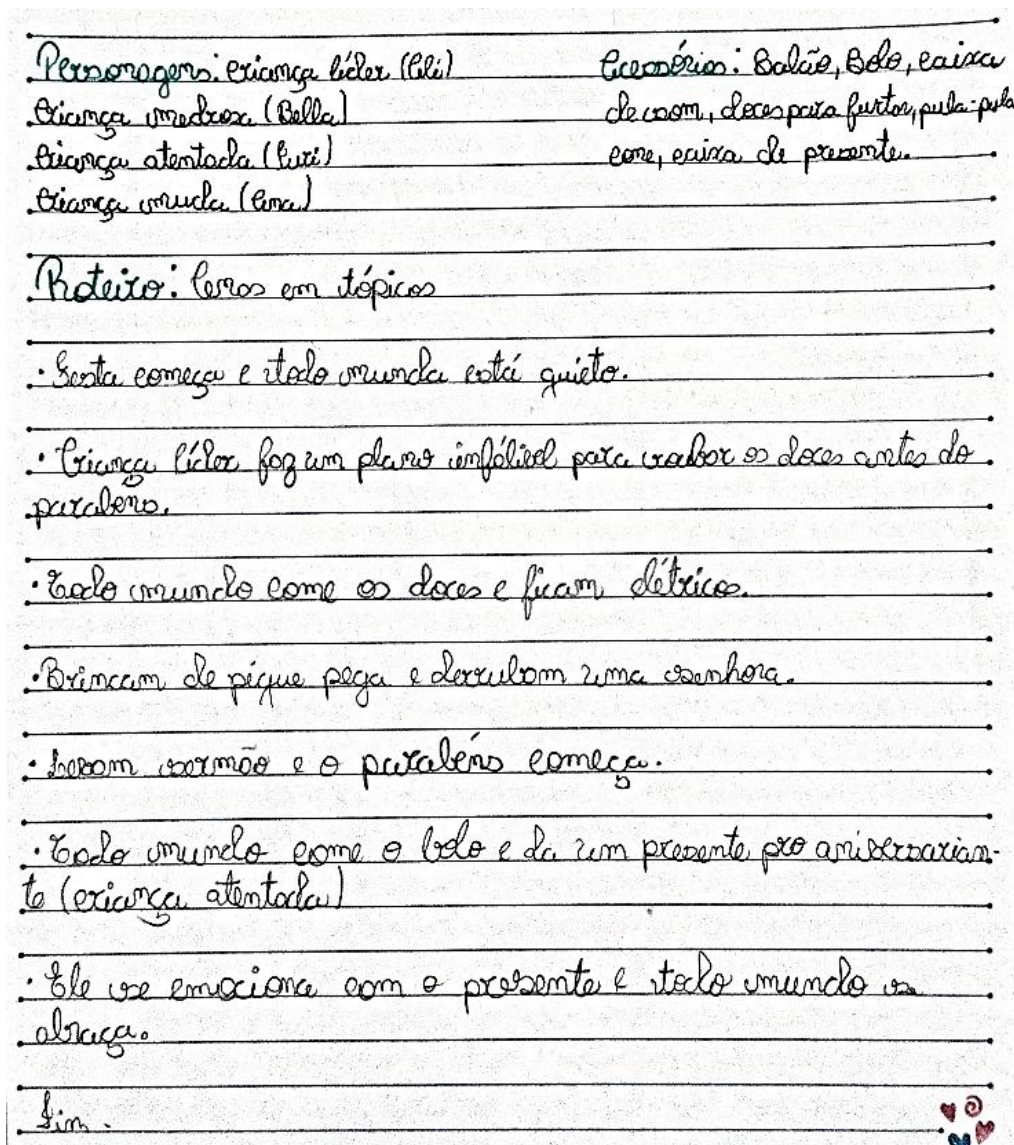 Personagens: criança líder (Ali)
Criança medrosa (Bella)
Criança atentada
Criança muda (Ana)
Acessórios: Balão, Bolo, caixa
de som, doces para furtar, pula-pula
cone, caixa de presente.
Roteiro: Cenas em tópicos
• Festa começa e todo mundo está quieto.
• Criança líder faz um plano infálivel para roubar os doces antes do
parabens.
• Todo mundo come os doces e ficam elétricos.
• Brincam de pique pega e derrubam uma senhora.
• Levam sermão e o parabéns começa.
• Todo mundo come o bolo e da um presente pro aniversarian-
te (criança atentada)
• Ele se emociona com o presente e todo mundo se
abraça.
Fim.